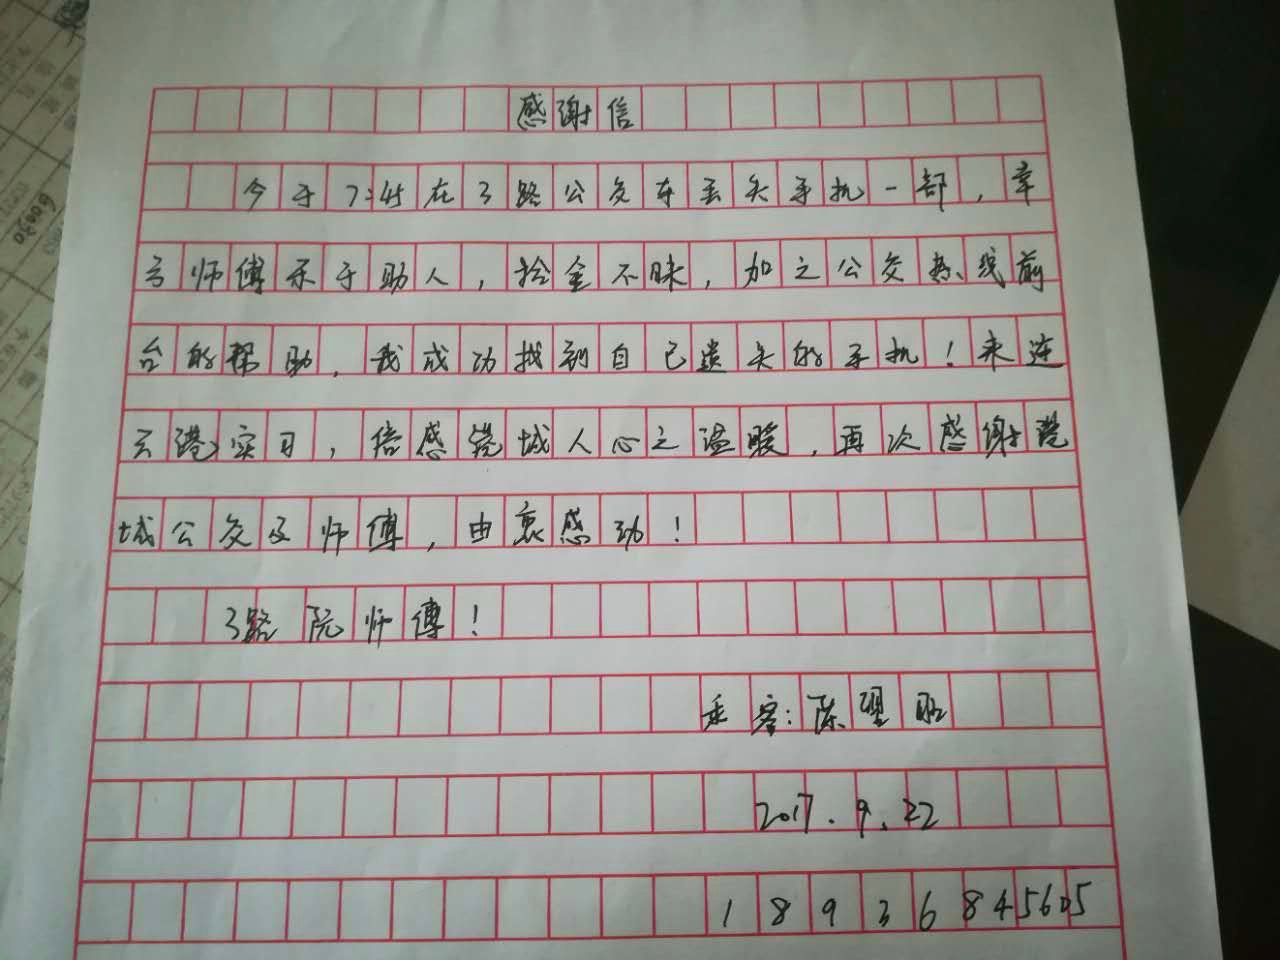 感谢信
今于7:45在3路公交车丢失手机一部,幸
亏师傅乐于助人,拾金不昧,加之公交热线前
台的帮助,我成功找到自己遗失的手机!来连
云港实习,倍感港城人心之温暖,再次感谢港
城公交及师傅,由衷感动!
3路阮师傅!
乘客:陈
2017.9.22